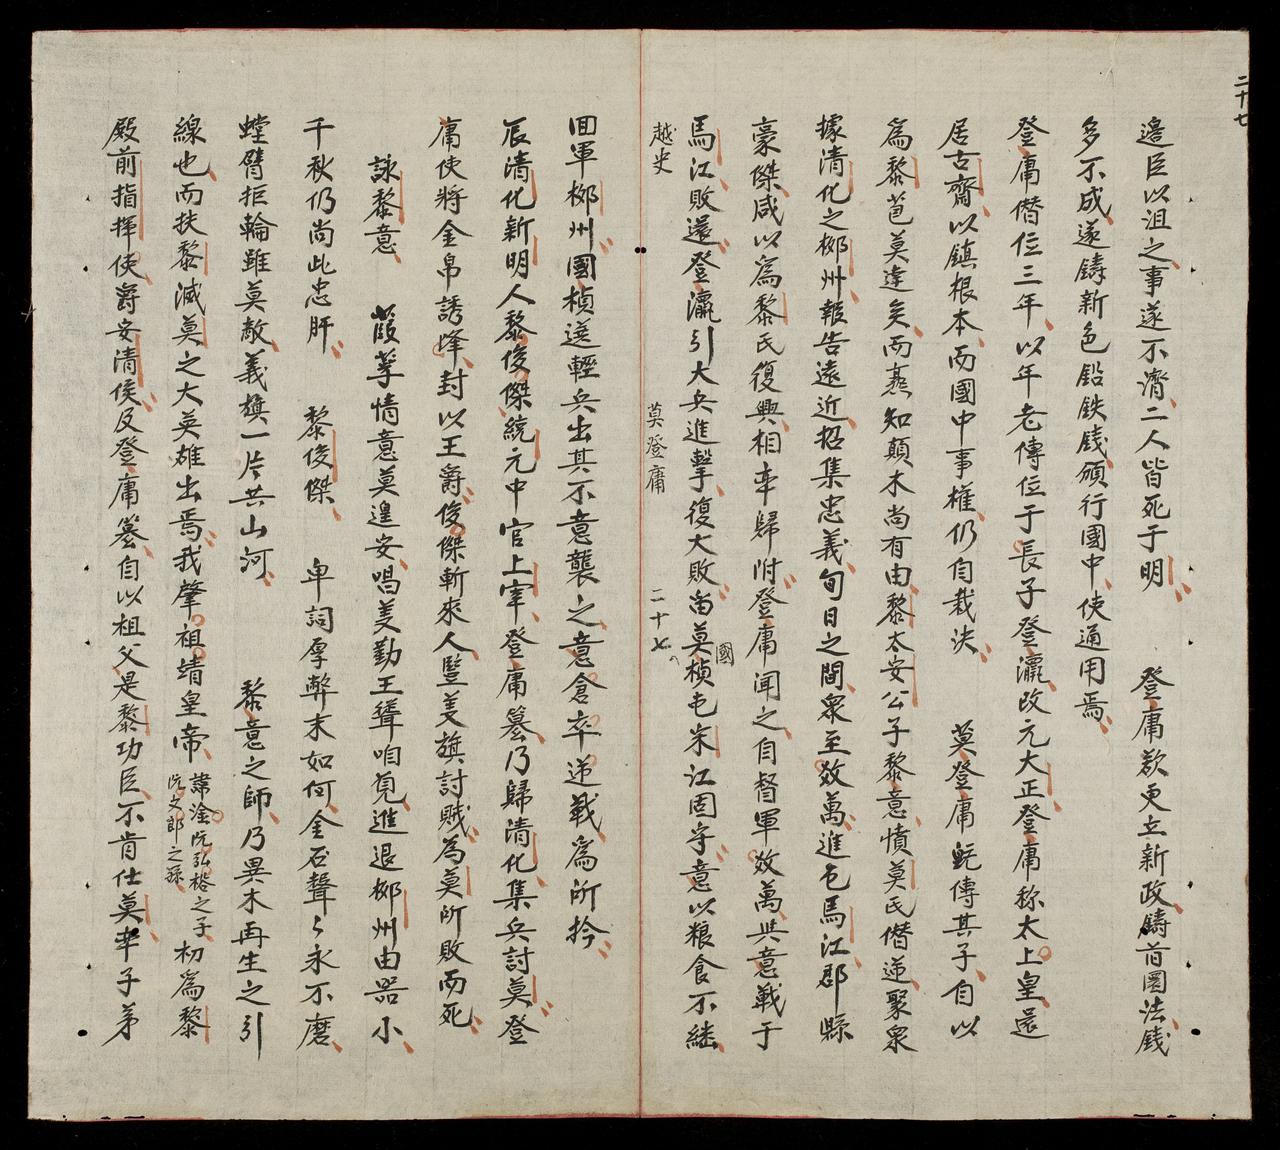 二十七
邉臣以沮之事遂不濟二人皆死于明　登庸欲更立新政鑄首圜法錢
多不成遂鑄新色鉛鉄錢頒行國中使通用焉
登庸僭位三年以年老傳位于長子登瀛改元大正登庸称太上皇還
居古齋以鎮根本而國中事權仍自裁決　莫登庸旣傳其子自以
為黎苞莫違矣而熹知顛木尚有由黎太安公子黎意憤莫氏僭逆聚衆
據清化之梛州報告遠近招集忠義旬日之間衆至效萬進屯馬江郡縣
豪傑咸以爲黎氏復興相率歸附登庸聞之自督軍效萬與意戰于
馬江敗還登瀛引大兵進擊復大敗畱莫國楨屯朱江固守意以粮食不継
越史　莫登庸　二十七
囬軍梛州國楨选輕兵出其不意襲之意倉卒逆戰爲所擒
辰清化新明人黎俊傑統元中官上宰登庸簒乃歸清化集兵討莫登
庸使將金帛誘降封以王爵俊傑斬來人豎美旗討賊為莫所敗而死
詠黎意　葭莩情意莫遑安唱美勤王聳咱覓進退梛州由器小
千秋仍尚此忠肝　黎俊傑　卑詞厚弊末如何金石聲〻永不磨
螳臂拒輪雖莫敵義旗一片共山河　黎意之師乃異木再生之引
線也而扶黎滅莫之大英雄出焉我肇祖靖皇帝諱淦阮弘裕之子阮文郎之孫初爲黎
殿前指揮使爵安清侯及登庸簒自以祖父是黎功臣不肯仕莫率子苐